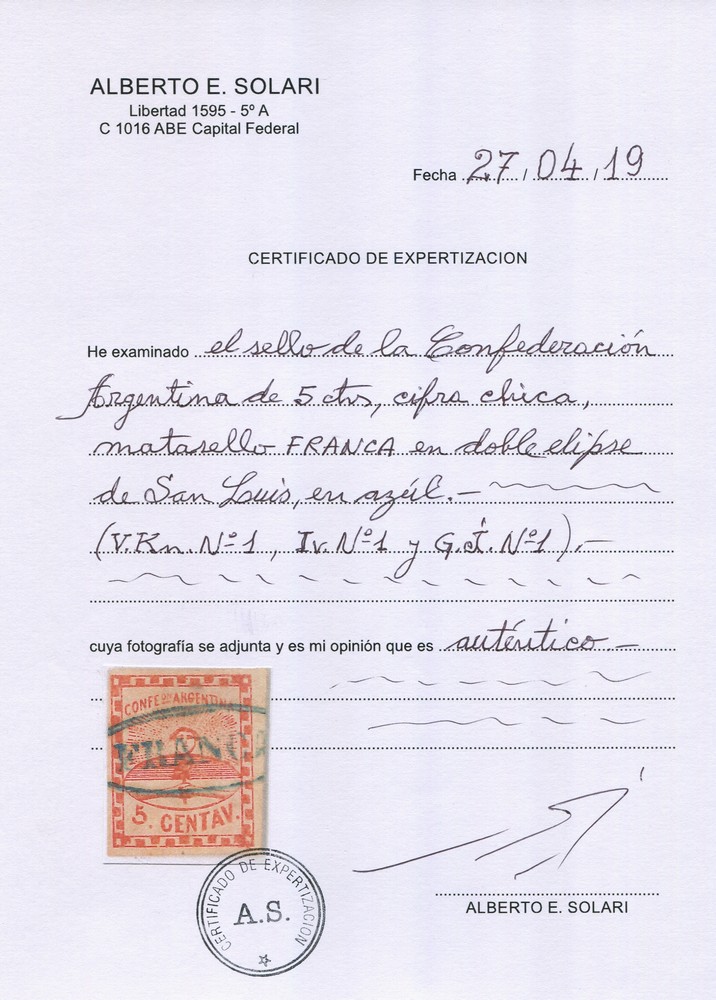 ALBERTO E. SOLARI
Libertad 1595 - 5º A
C 1016 ABE Capital Federal
Fecha 27 / 04 / 19
CERTIFICADO DE EXPERTIZACION
He examinado el sello de la Confederación
Argentina de 5 ctvs, cifra chica,
matasello FRANCA en doble elipse
de San Luis, en azúl.-
(V.Kn. Nº1, Iv. Nº1 y G.J. Nº1).-
cuya fotografía se adjunta y es mi opinión que es auténtico -
CONFEON ARGENTINA
FRANCA
5. CENTAV.
CERTIFICADO DE EXPERTIZACION
A.S.
ALBERTO E. SOLARI